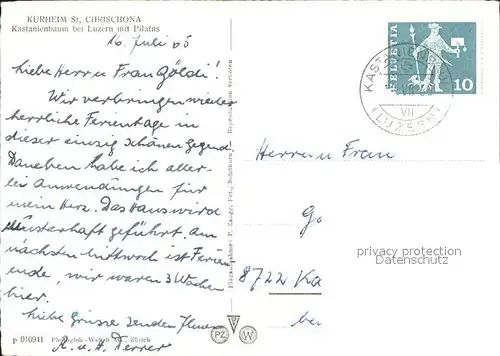 KURHEIM St. CHRISCHONA
Kastanienbaum bei Luzern mit Pilatus
16. Juli 65
Liebe Herr u Frau Göldi!
Wir verbringen wieder
herrliche Ferientage in
dieser einzig schönen Gegend.
Daneben habe ich aller-
lei Anwendungen für
mein Herz. Das Haus wird
Musterhaft geführt. Am
nächsten Mittwoch ist Ferien
ende, wir waren 3 Wochen
hier.
Liebe Grüsse senden Ihnen
K. u. A. Ferrer
P 010941 Photoglob-Wehrli AG., Zürich
Reproduktion verboten
PZ W
HELVETIA
10
KASTANIENBAUM
VII
(LUZERN)
Herrn u Frau
Go
8722 Ka
ber
privacy protection
Datenschutz